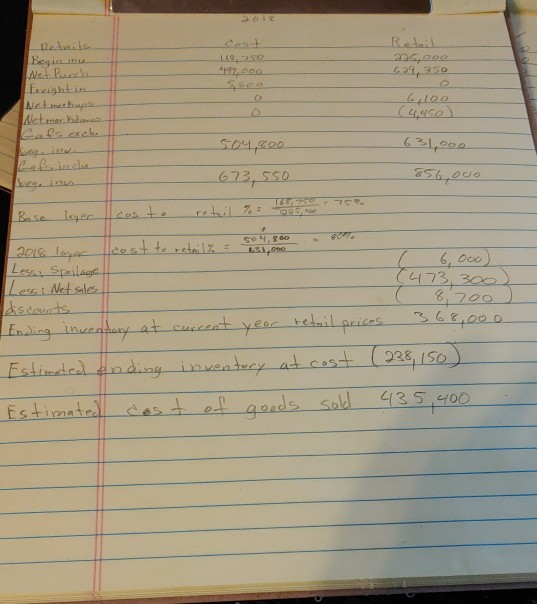 2018
Details Cost Retail
Begin inv 168,750 225,000
Net Purch 499,000 629,350
Freight in 5,800 0
Net markups 0 6,100
Net markdowns 0 (4,450)
Gafs exclu
beg. inv. 504,800 631,000
Gafs inclu
beg. inv. 673,550 856,000
Base layer cost to retail % = 168,750 / 225,000 = 75%
2018 layer cost to retail % = 504,800 / 631,000 = 80%
Less: Spoilage (6,000)
Less: Net sales (473,300)
discounts (8,700)
Ending inventory at current year retail prices 368,000
Estimated ending inventory at cost (238,150)
Estimated cost of goods sold 435,400